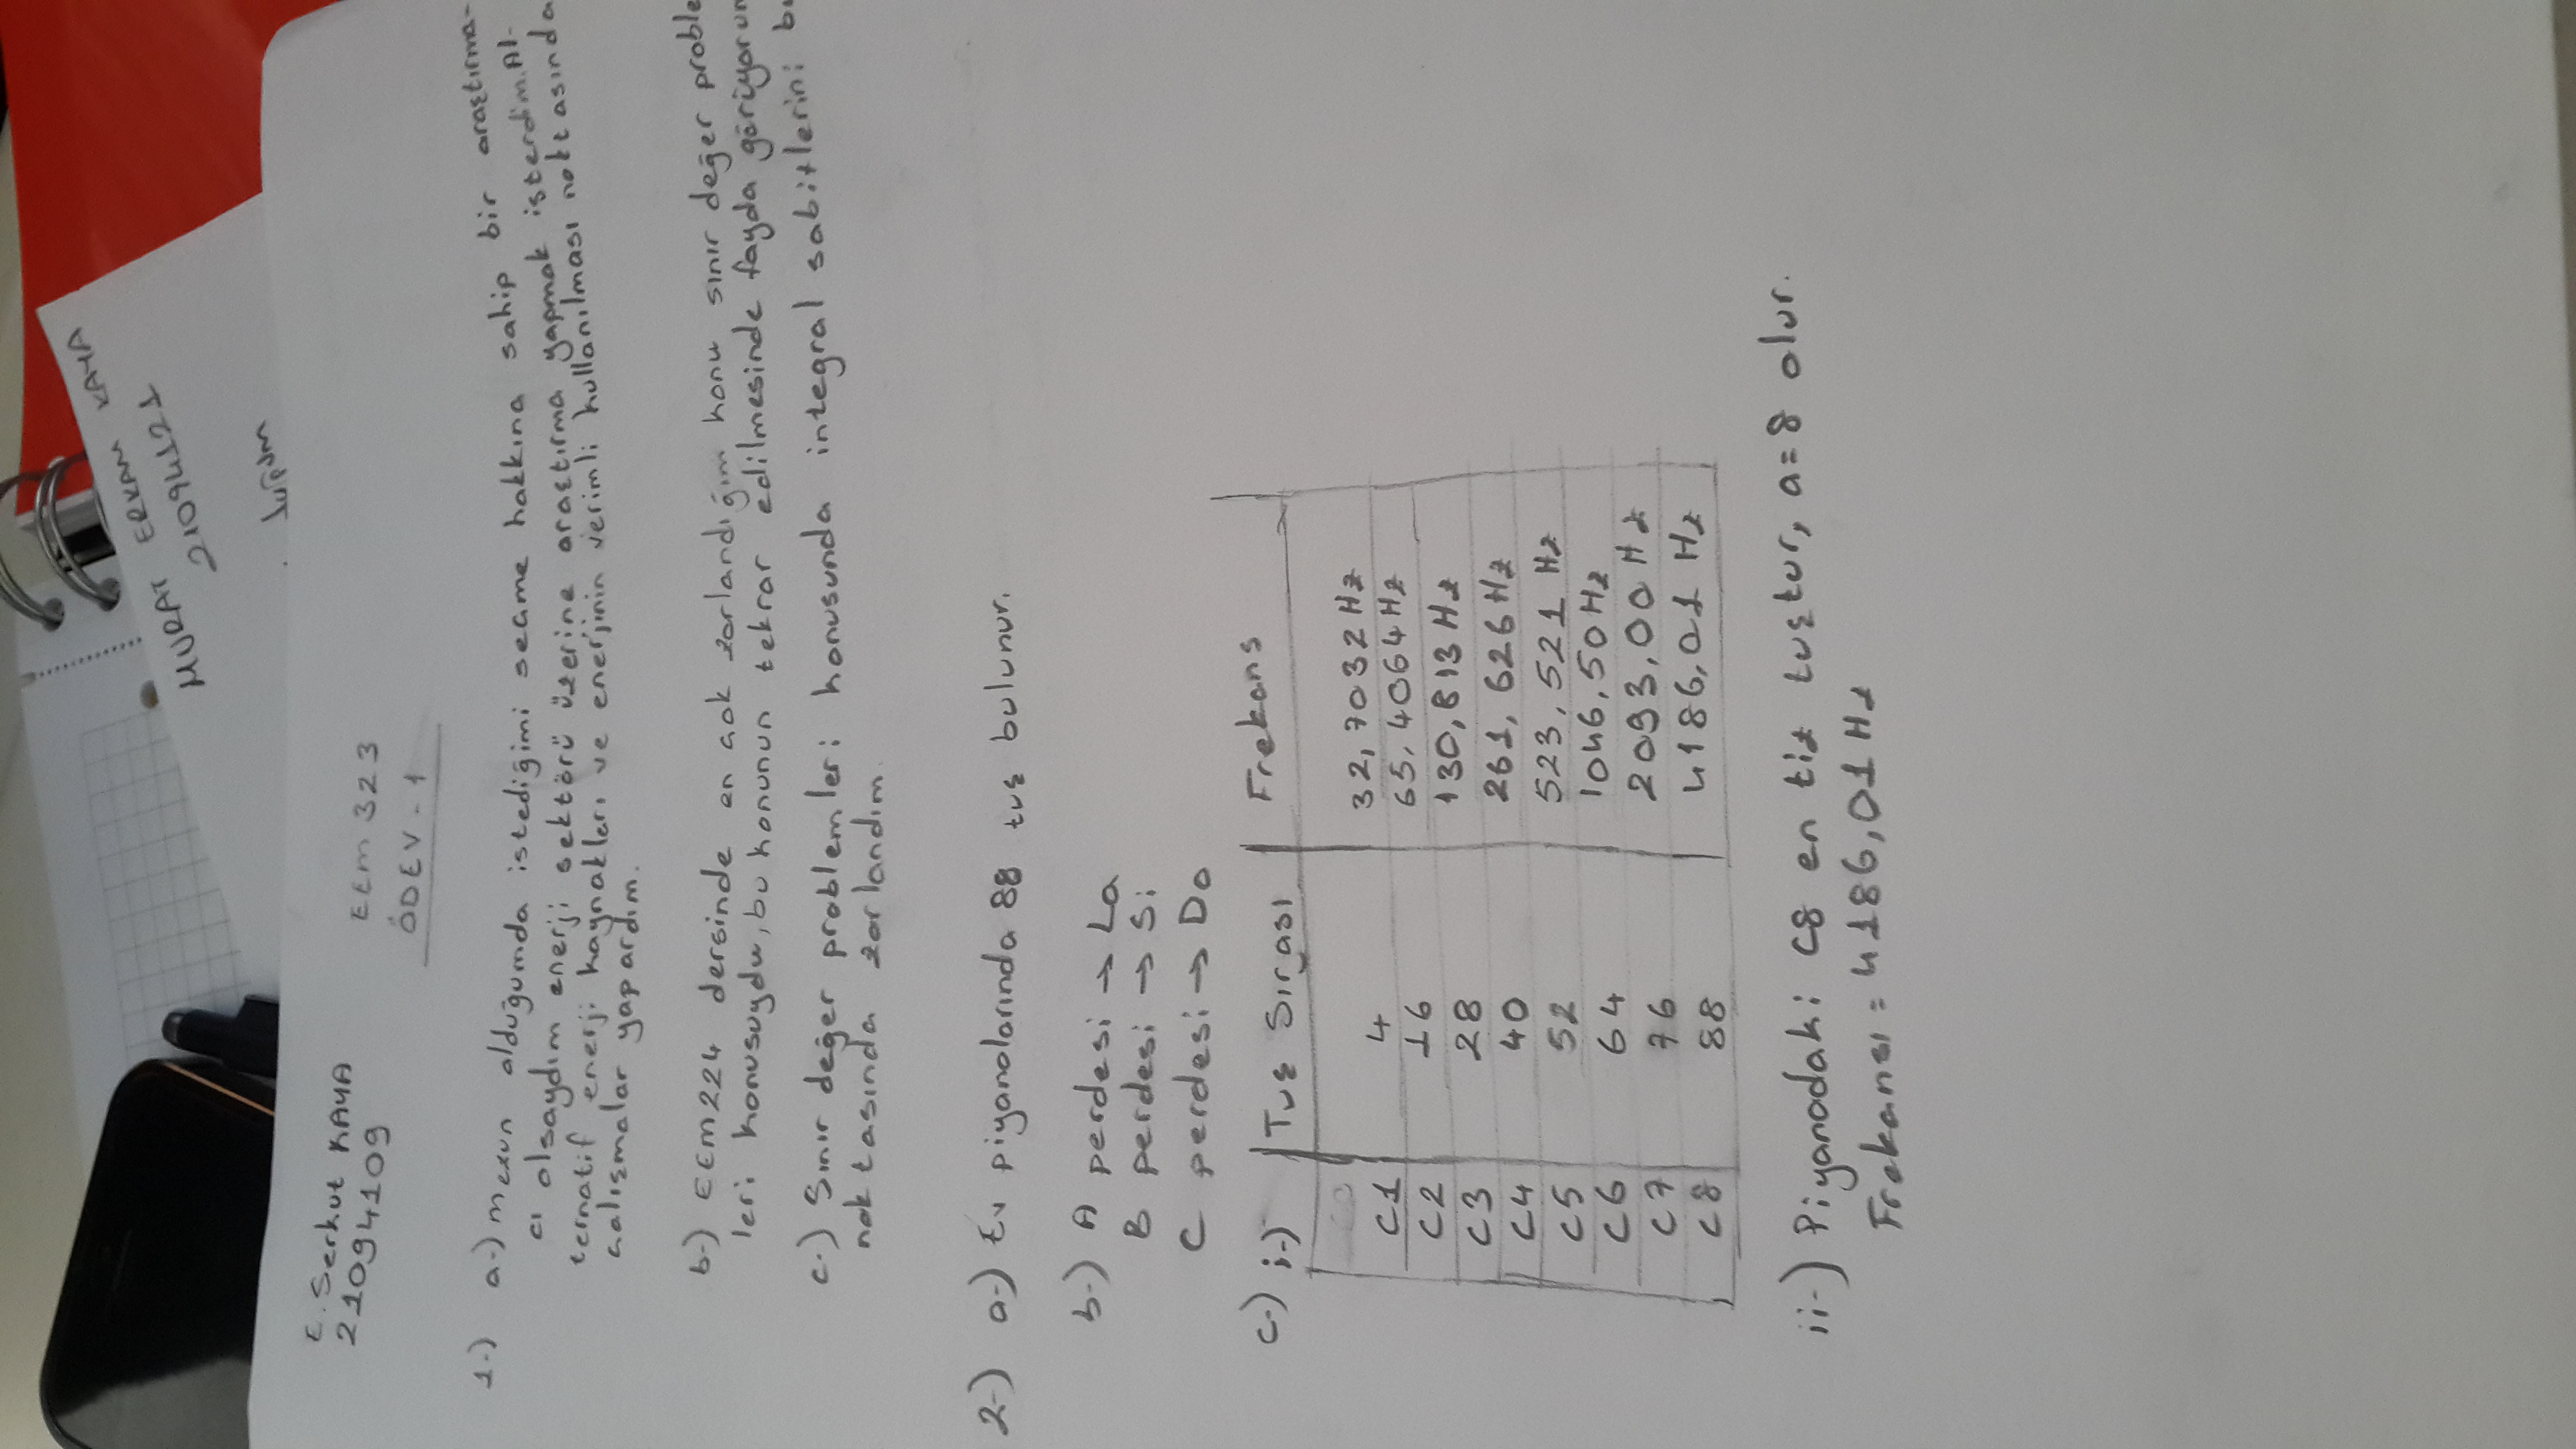 MURAT ERKAM KAYA
21094121
E. Serkut KAYA
21094109
EEM 323
ÖDEV - 1
1-) a-) mezun olduğumda istediğimi seçme hakkına sahip bir araştırma-
cı olsaydım enerji sektörü üzerine araştırma yapmak isterdim. Al-
ternatif enerji kaynakları ve enerjinin verimli kullanılması noktasında
çalışmalar yapardım.
b-) EEM224 dersinde en çok zorlandığım konu sınır değer proble
leri konusuydu, bu konunun tekrar edilmesinde fayda görüyorum
c-) Sınır değer problemleri konusunda integral sabitlerini
noktasında zorlandım.
2-) a-) Ev piyanolarında 88 tuş bulunur.
b-) A perdesi → La
B perdesi → Si
C perdesi → Do
c-) i-) Tuş Sırası Frekans
C1 4 32,7032 Hz
C2 16 65,4064 Hz
C3 28 130,813 Hz
C4 40 261,626 Hz
C5 52 523,521 Hz
C6 64 1046,50 Hz
C7 76 2093,00 Hz
C8 88 4186,01 Hz
ii-) Piyanodaki C8 en tiz tuştur, a=8 olur.
Frekansı = 4186,01 Hz